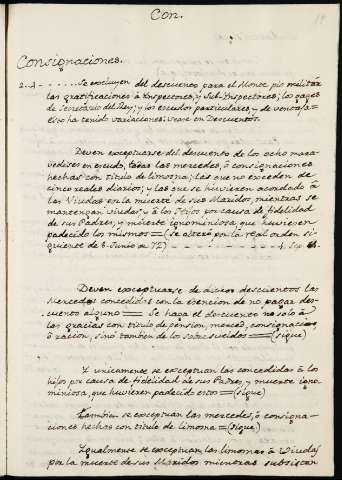 Con.
Consignaciones.
2..1- . . . . . . Se excluyen del descuento para el Monte pio militár
las gratificaciones à Inspectores, y Sub-Inspectores; los gages
de Secretario del Rey; y los escudos particulares, y de ventaja=
Esto ha tenido variaciones: vease en Descuentos.
Deven exceptuarse del descuento de los ocho mara-
vedises en escudo, todas las mercedes, ò consignaciones
hechas con titulo de limosna; las que no exceden de
cinco reales diarios; y las que se huvieren acordado à
las Viudas por la muerte de sus Maridos, mientras se
mantengan viudas; y à los Hijos por causa de fidelidad
de sus Padres, y muerte ignominiosa que huviesen
padecido los mismos = (se alteró por la real orden si-
guiente de 8. Junio de 72)
Deven exceptuarse de dichos descuentos las
Mercedes concedidas con la esencion de no pagar des-
cuento alguno = Se haga el descuento no solo à
las gracias con titulo de pension, merced, consignacion,
ò racion, sino tambien de los sobresueldos = (sigue)
Y unicamente se exceptuan las concedidas à los
hijos por causa de fidelidad de sus Padres, y muerte igno-
miniosa, que huviesen padecido estos = (sigue)
Tambien se exceptuan las mercedes, ò consigna-
ciones hechas con titulo de limosna = (sigue)
Igualmente se exceptuan las limosnas à Viudas
por la muerte de sus Maridos mientras subsistan